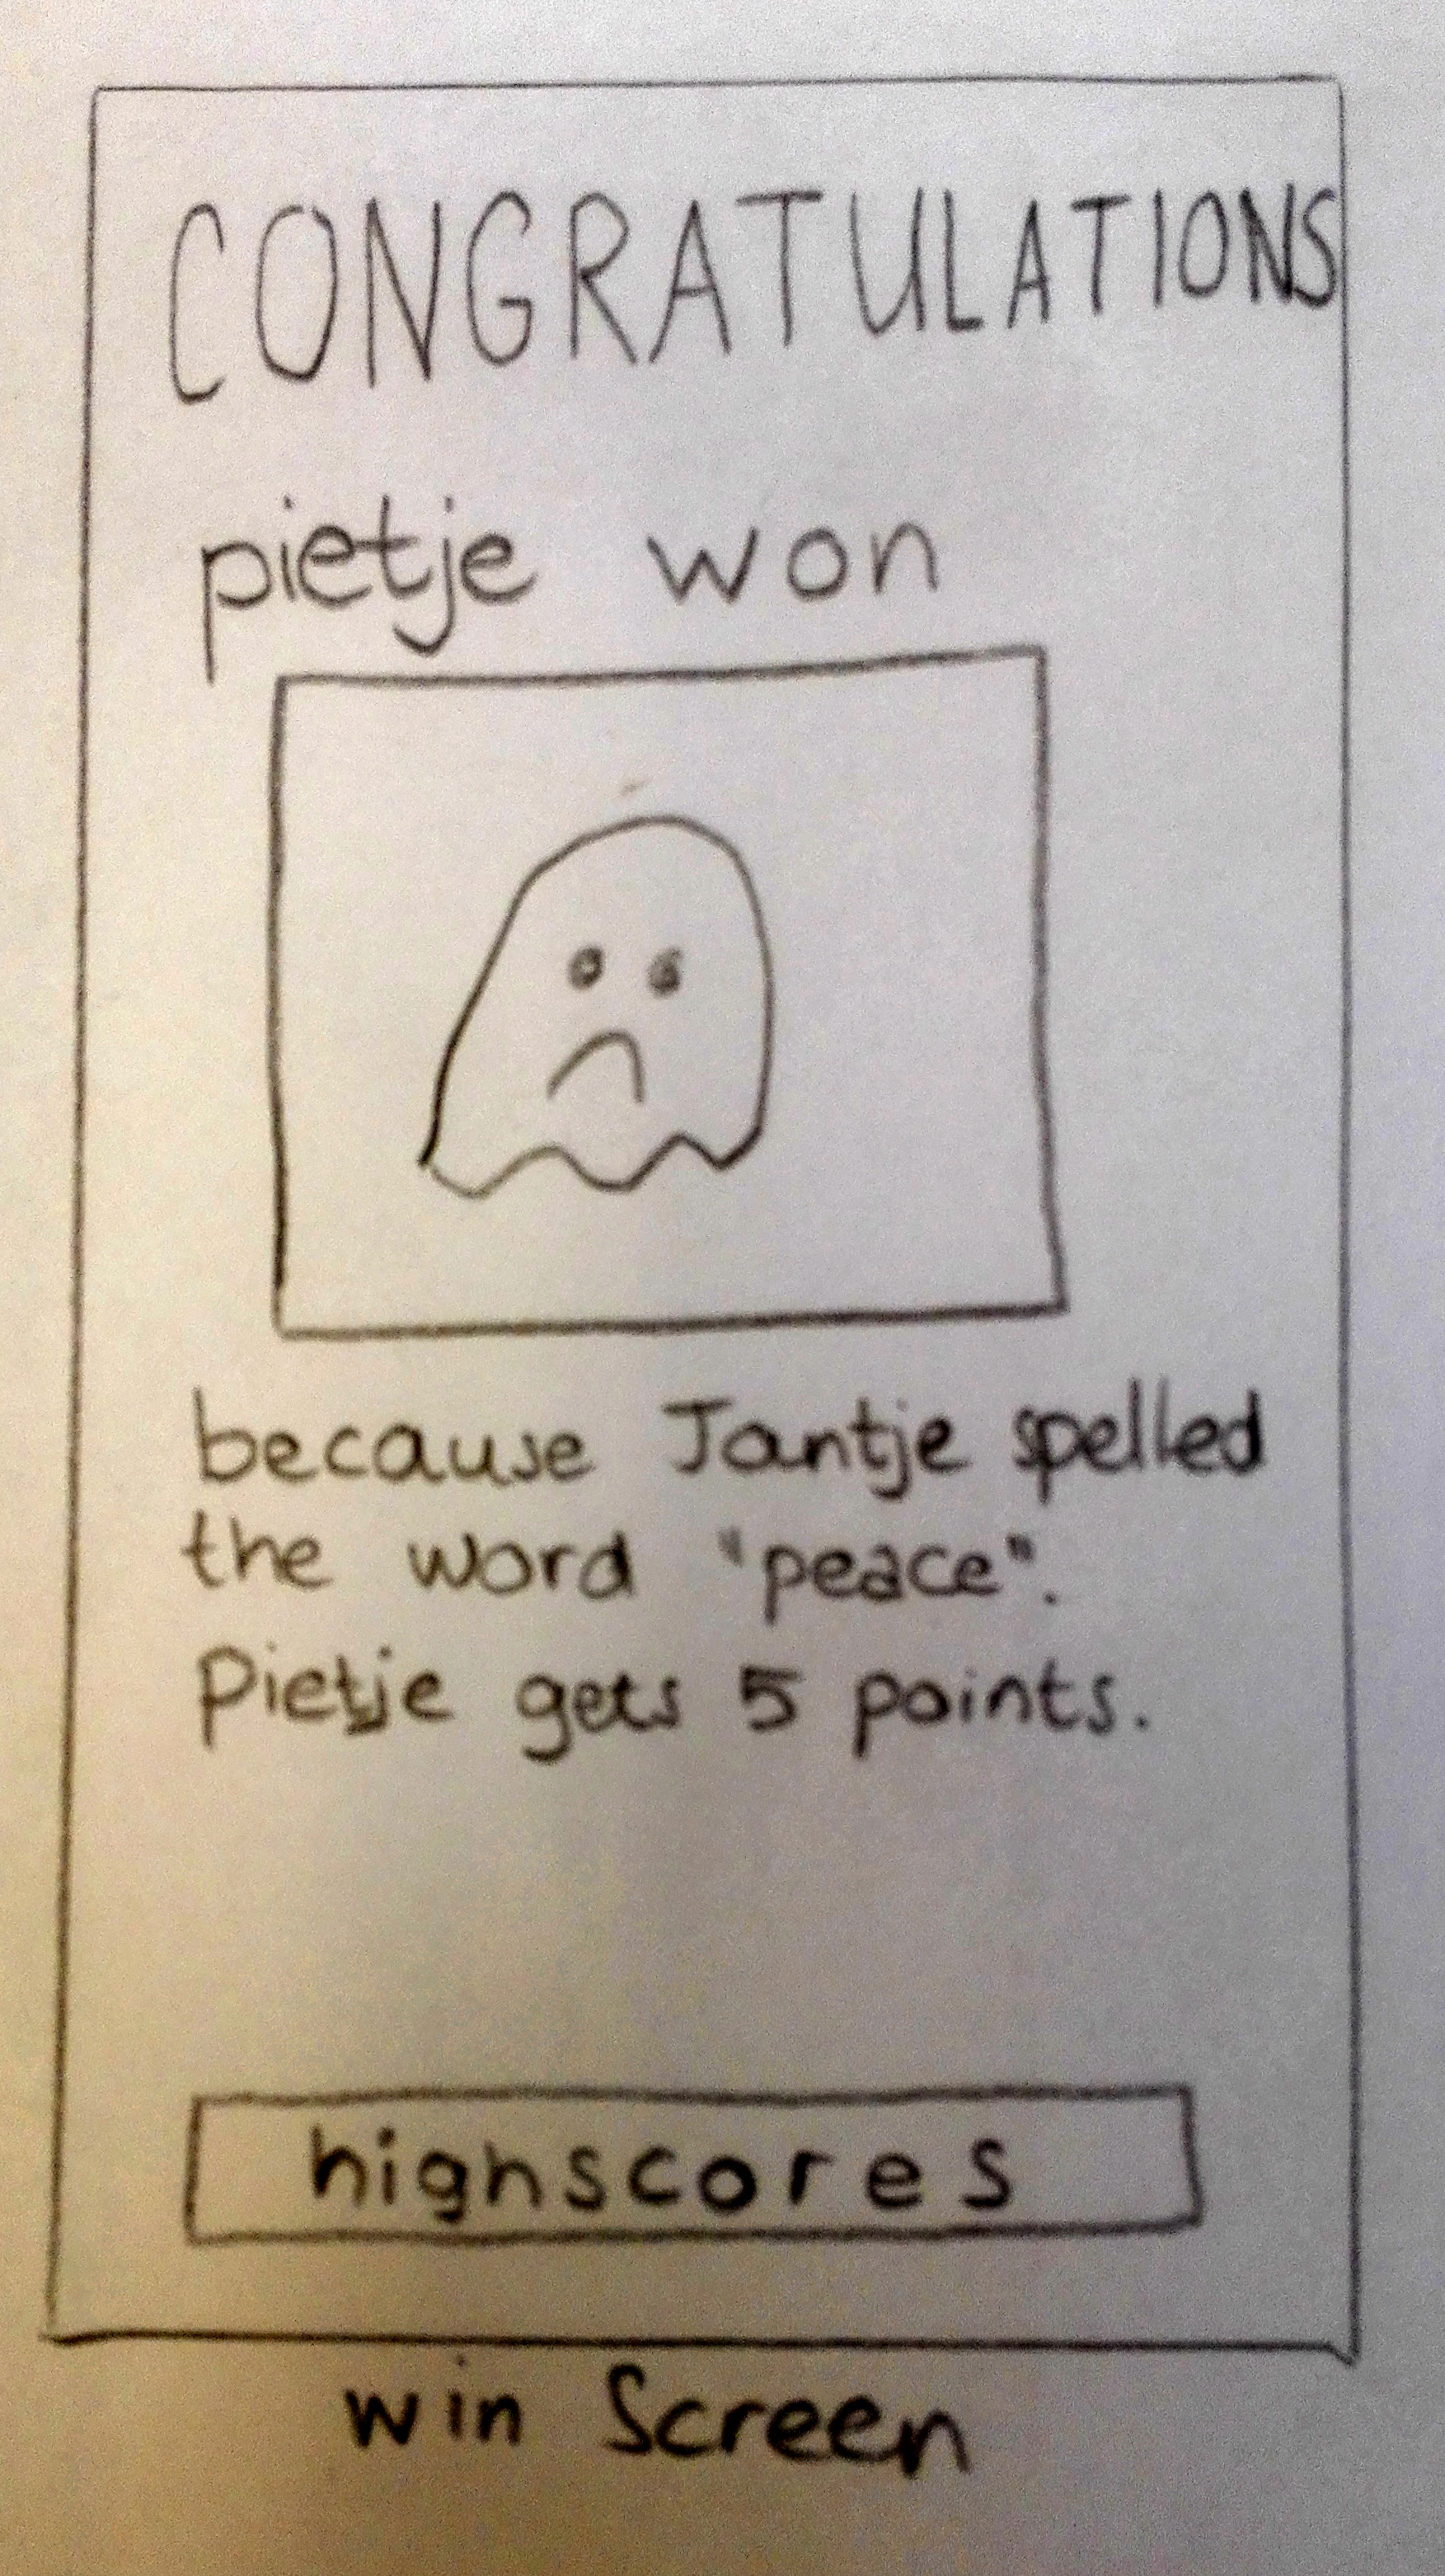 CONGRATULATIONS
pietje won
because Jantje spelled
the word "peace".
Pietje gets 5 points.
highscores
win Screen